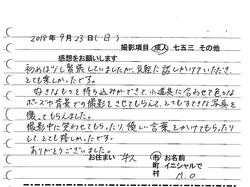 2018年9月23日(日)
撮影項目 成人 七五三 その他
感想をお願いします
初めは少し緊張していましたが、気軽に話しかけていただき、
とても楽しかったです。
好きなものを持ち込みができて、小道具に合わせて色々な
ポーズや背景での撮影をさせてもらえて、とてもすてきな写真を
撮ってもらえました。
撮影中に笑わせてもらったり、優しい言葉をかけてもらったり
して、とても嬉しかったです。
ありがとうございました。
お住まい 市 町 村 お名前 イニシャルで
M.O